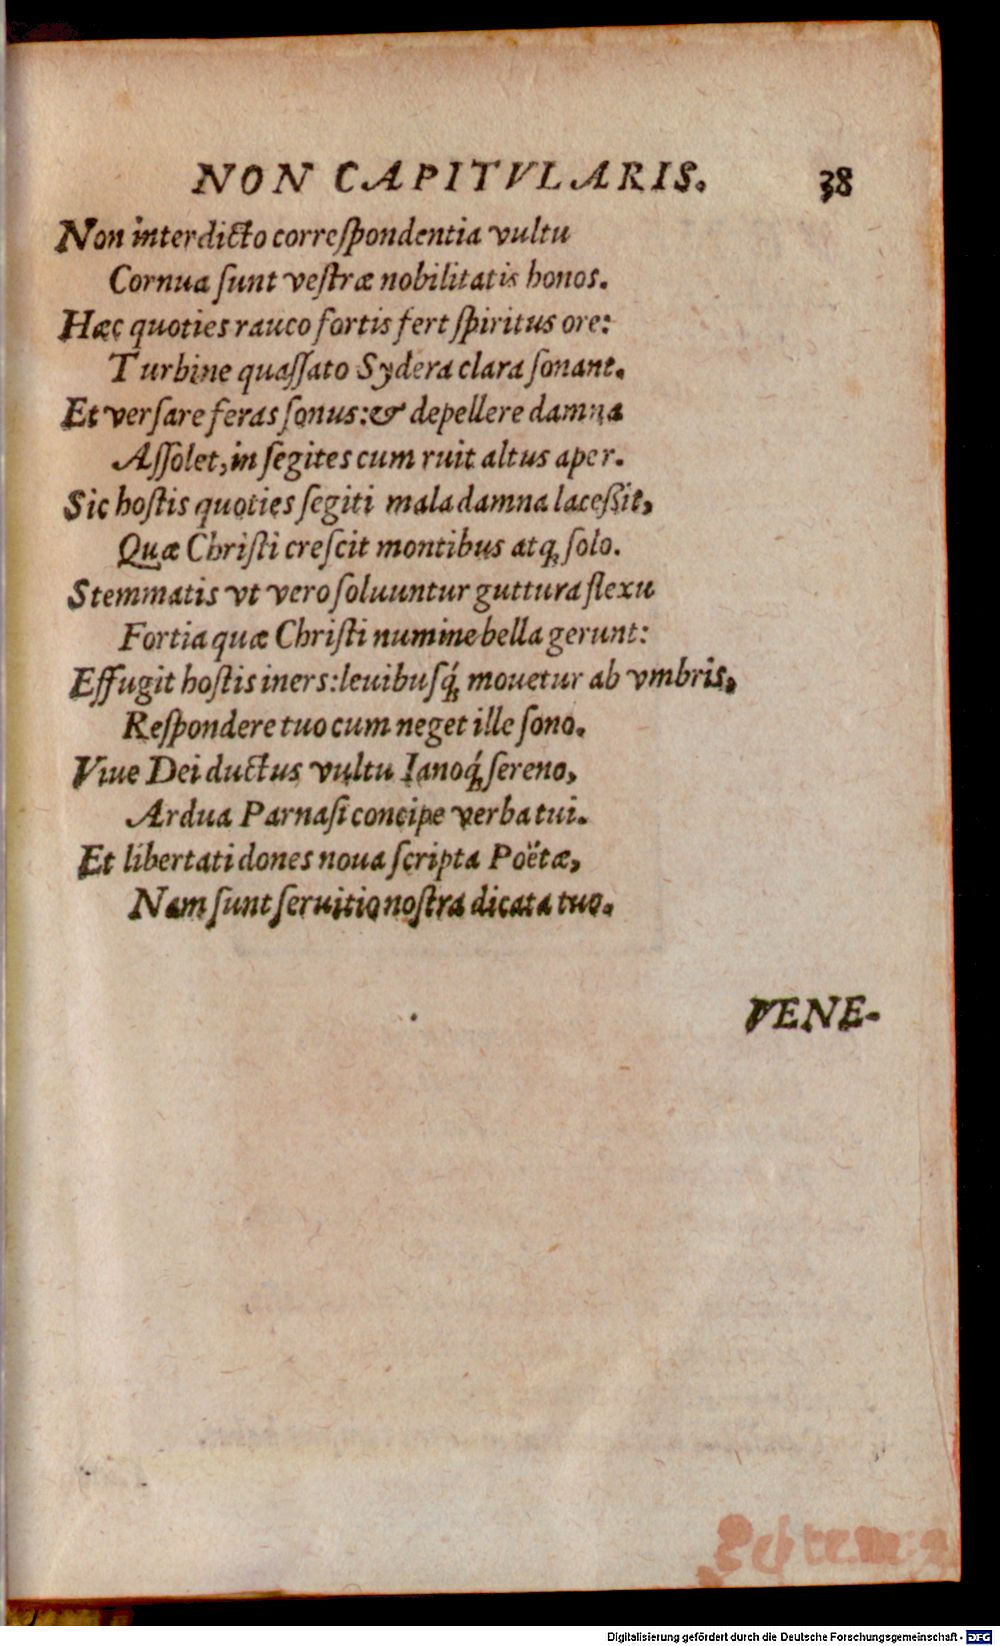 NON CAPITVLARIS. 38
Non interdicto correſpondentia vultu
Cornua ſunt veſtræ nobilitatis honos.
Hæc quoties rauco fortis fert ſpiritus ore:
Turbine quaſſato Sydera clara ſonant.
Et verſare feras ſonus:& depellere damna
Aſſolet, in ſegites cum ruit altus aper.
Sic hoſtis quoties ſegiti mala damna laceſſit,
Quæ Chriſti creſcit montibus atq; ſolo.
Stemmatis vt vero ſoluuntur guttura flexu
Fortia quæ Chriſti numine bella gerunt:
Effugit hoſtis iners:leuibuſq́; mouetur ab vmbris,
Reſpondere tuo cum neget ille ſono.
Viue Dei ductus vultu Ianoq́; ſereno,
Ardua Parnaſi concipe verba tui.
Et libertati dones noua ſcripta Poëtæ,
Nam ſunt ſeruitio noſtra dicata tuo.
VENE-
Digitalisierung gefördert durch die Deutsche Forschungsgemeinschaft - DFG